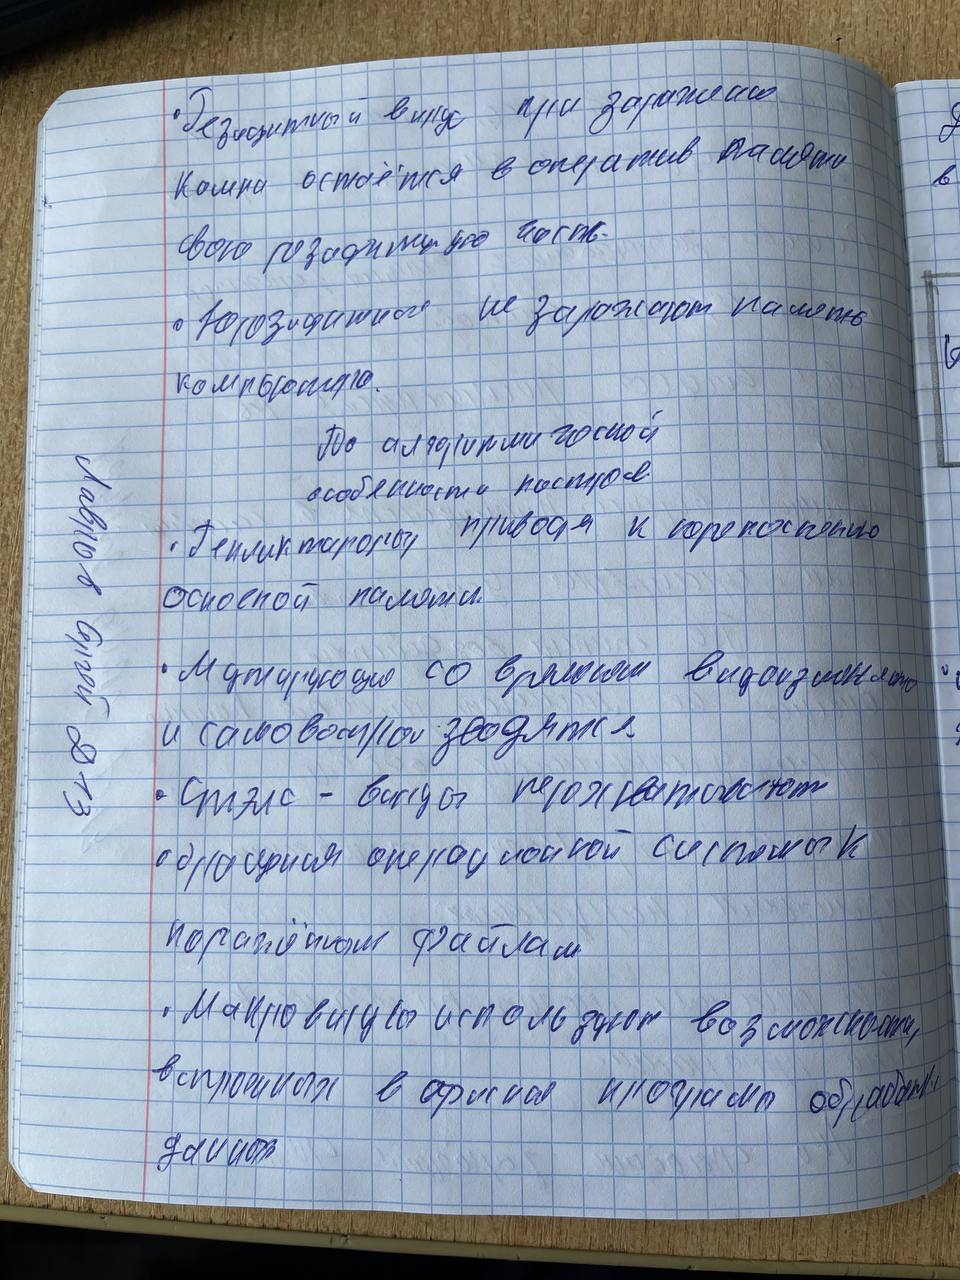 • Резидитный вирус при заражении
компа остаётся в оператив памяти
свою резидитную часть.
• Нерезидитные не заражают память
компьютера.
По алгоритмической
особенности построе
• Репликтароры приводя к переполнению
основной памяти.
• Мутирующие со временем видоизменяют
и самовоспроизводятся
• Стэлс - вирусы перехватывают
обращения операционной системы к
поражённым файлам
• Макровирусы используют возможности,
встроенных в офисная программы обработки
данных
Лаврков Сергей